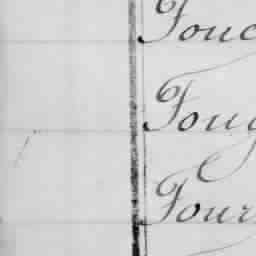 Fouc
Foug
Four